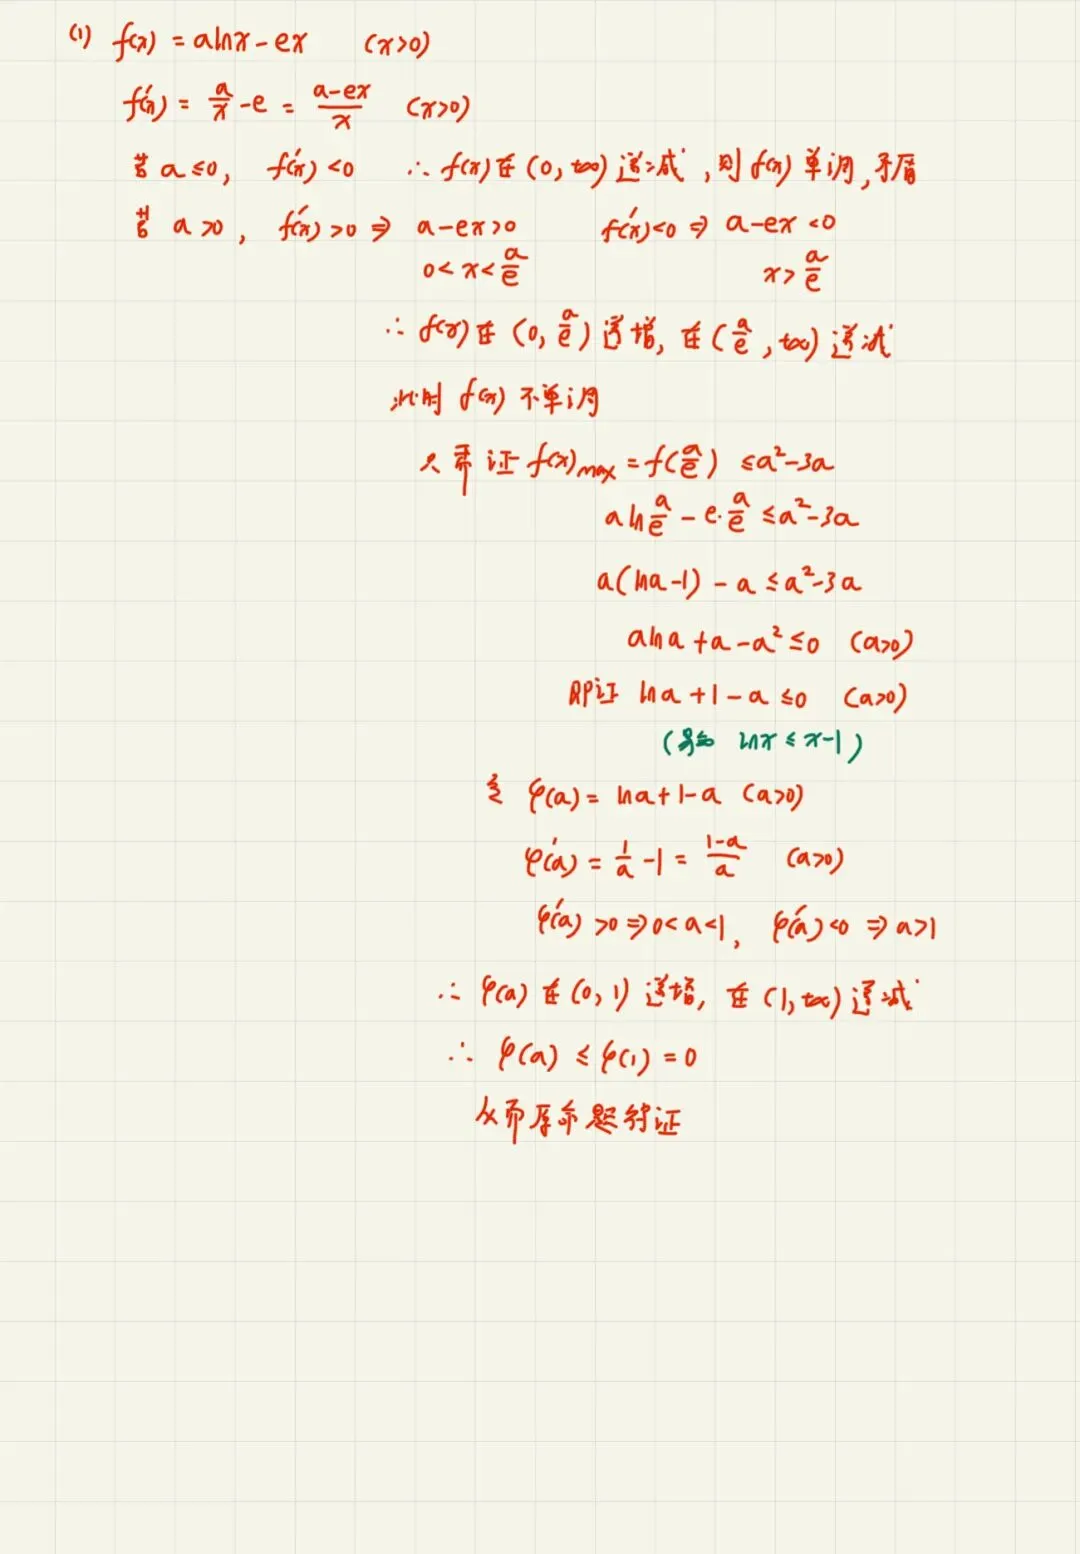 (1) f(x) = alnx - ex (x>0)
f'(x) = a/x - e = (a-ex)/x (x>0)
若 a≤0, f'(x)<0 ∴ f(x)在(0,+∞)递减,则f(x)单调,矛盾
若 a>0, f'(x)>0 ⇒ a-ex>0 f'(x)<0 ⇒ a-ex<0
0<x<a/e x>a/e
∴ f(x)在(0,a/e)递增,在(a/e,+∞)递减
此时 f(x)不单调
只需证 f(x)max = f(a/e) ≤ a²-3a
aln a/e - e·a/e ≤ a²-3a
a(lna-1) - a ≤ a²-3a
alna + a - a² ≤ 0 (a>0)
即证 lna + 1 - a ≤ 0 (a>0)
(易知 lnx ≤ x-1)
令 φ(a) = lna + 1 - a (a>0)
φ'(a) = 1/a - 1 = (1-a)/a (a>0)
φ'(a)>0 ⇒ 0<a<1, φ'(a)<0 ⇒ a>1
∴ φ(a)在(0,1)递增,在(1,+∞)递减
∴ φ(a) ≤ φ(1) = 0
从而原命题得证